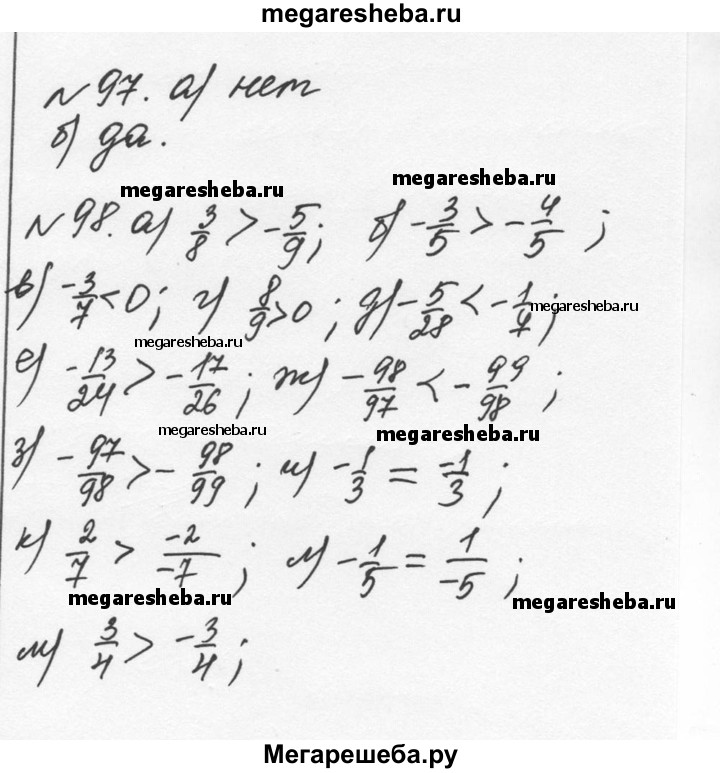 megaresheba.ru
№97. а) нет
б) да.
megaresheba.ru megaresheba.ru
№98. а) 3/8 > -5/9; б) -3/5 > -4/5;
в) -3/7 < 0; г) 8/9 > 0; д) -5/28 < -1/7;
megaresheba.ru
megaresheba.ru
е) -13/24 > -17/26; ж) -98/97 < -99/98;
megaresheba.ru megaresheba.ru
з) -97/98 > -98/99; и) -1/3 = -1/3;
к) 2/7 > -2/-7; л) -1/5 = 1/-5;
megaresheba.ru megaresheba.ru
м) 3/4 > -3/4;
Мегарешеба.ру